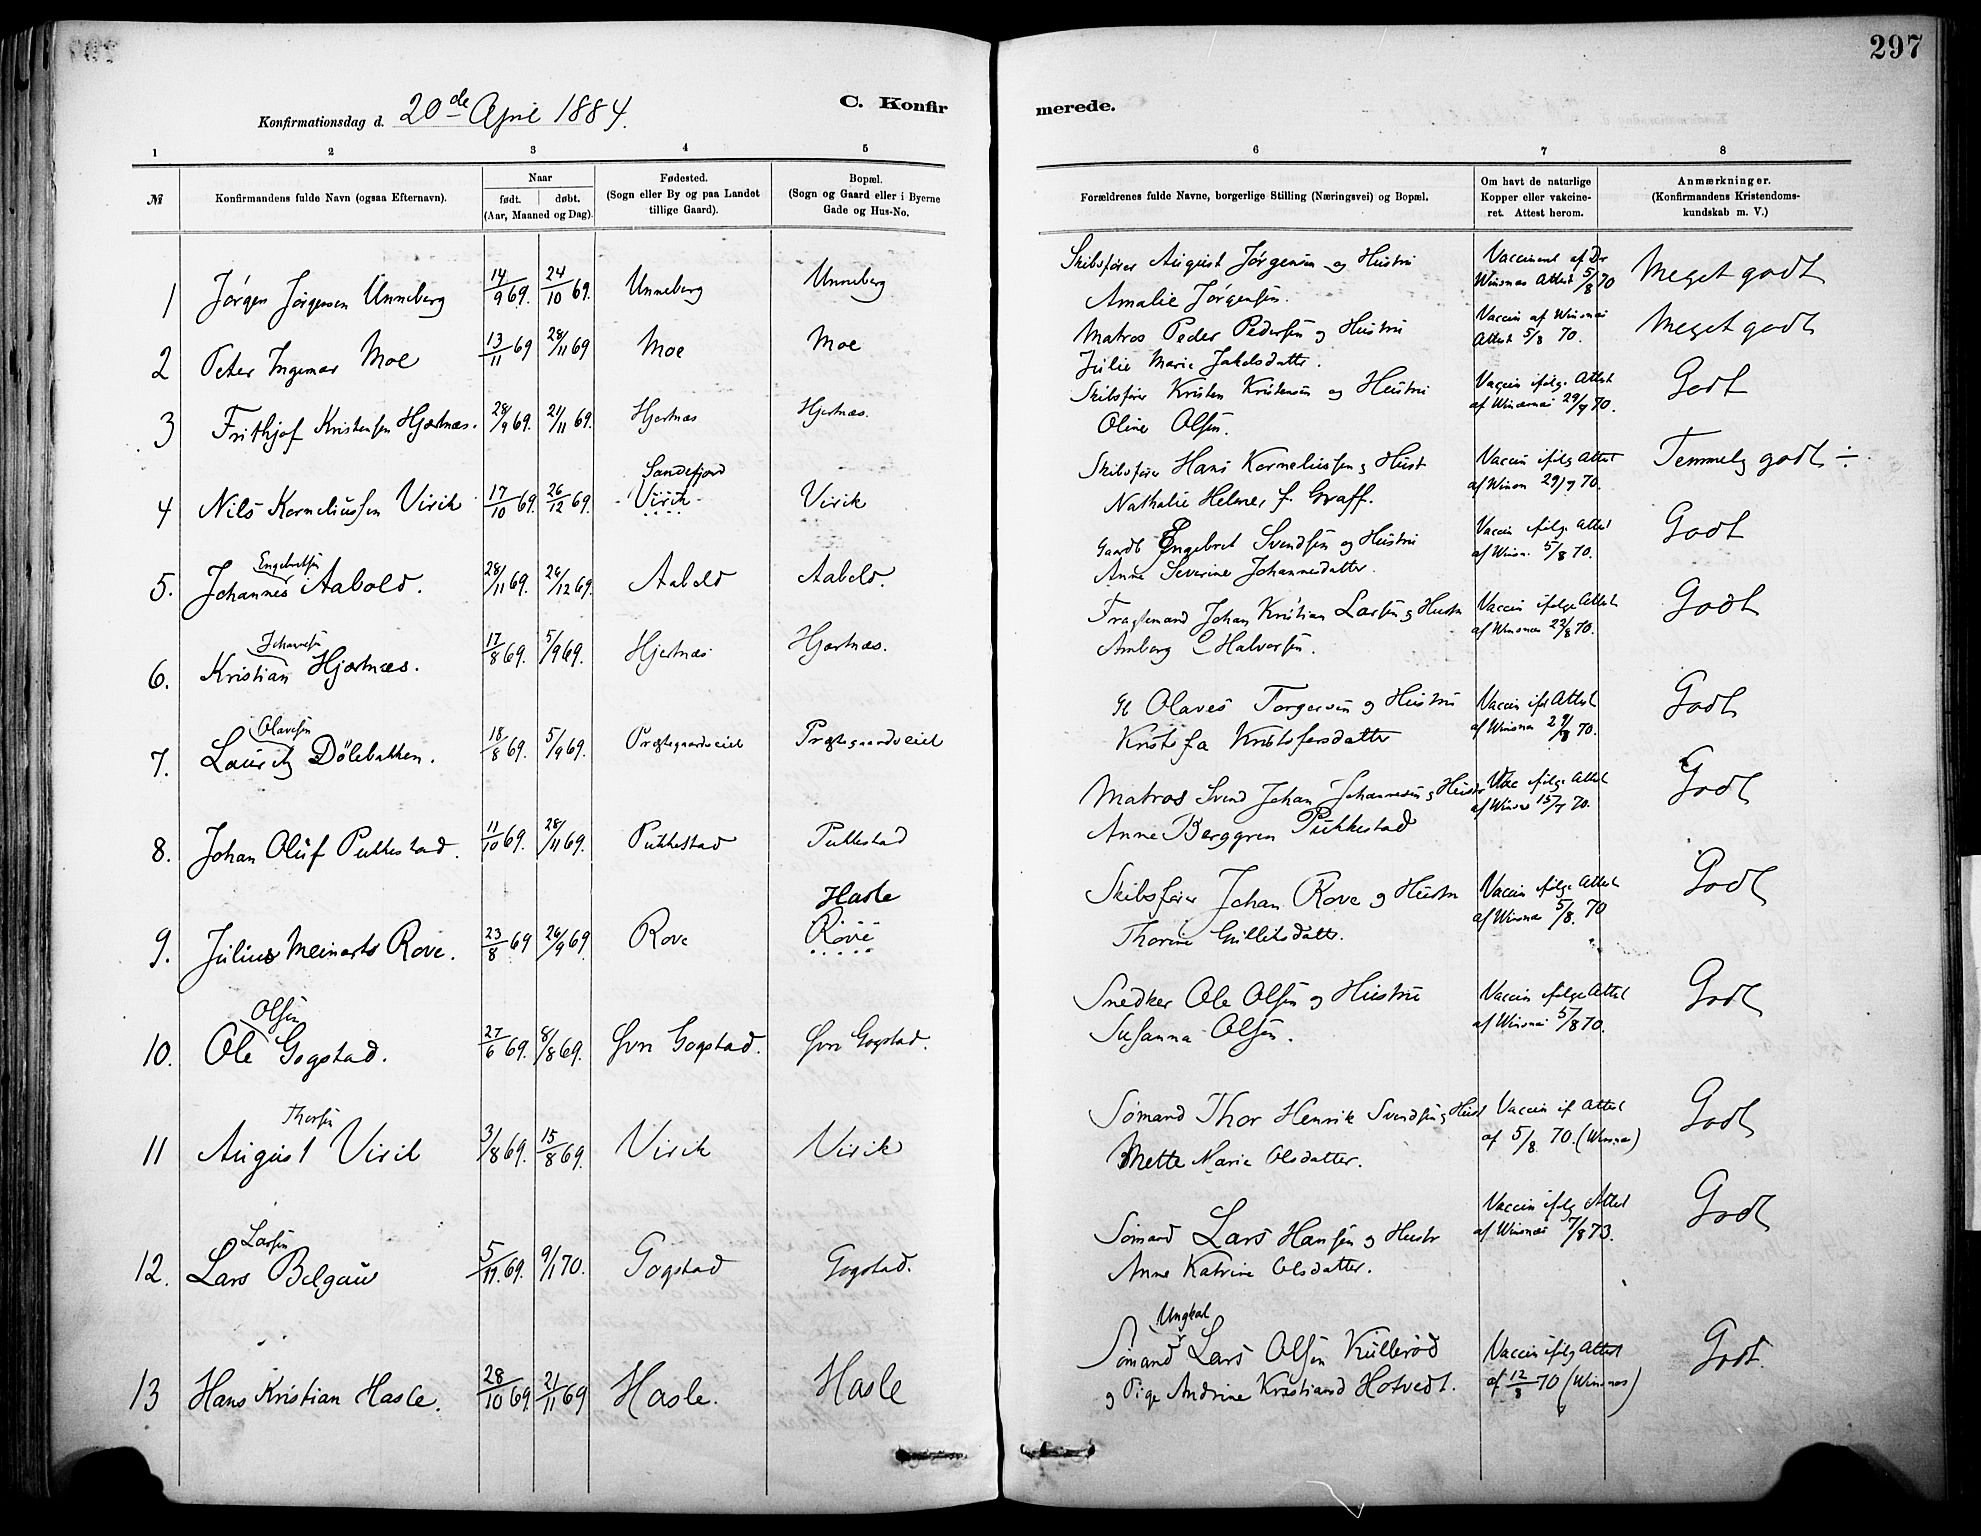 297
Konfirmationsdag d. 20de April 1884.
C. Konfirmerede.
1 2 3 4 5 6 7 8
№ Konfirmandens fulde Navn (ogsaa Efternavn). Naar født. døbt. (Aar, Maaned og Dag). Fødested. (Sogn eller By og paa Landet tillige Gaard). Bopæl. (Sogn og Gaard eller i Byerne Gade og Hus-No. Forældrenes fulde Navne, borgerlige Stilling (Næringsvei) og Bopæl. Om havt de naturlige Kopper eller vakcineret. Attest herom. Anmærkninger. (Konfirmandens Kristendomskundskab m. V.)
1 Jörgen Jörgensen Unneberg 14/9 69. 24/10 69. Unneberg Unneberg Skibsfører August Jörgensen og Hustru Vaccineret af Dr Meget godt
Amalie Jörgensen. Winsnes Attest 5/8 70
2 Peter Ingemar Moe 13/11 69 28/11 69 Moe Moe Matros Peder Pedersen og Hustru Vaccin af Winsnes Meget godt
Julie Marie Jakobsdatter. Attest 5/8 70.
3 Frithjof Kristensen Hjertnæs. 28/9 69. 21/11 69. Hjertnæs Hjertnæs. Skibsfører Kristen Kristensen og Hustru Vaccin ifølge Attest Godt
Oline Olsen. af Winsnes 29/7 70.
4 Nils Korneliussen Virik 17/10 69. 26/12 69. Sandefjord Virik Virik Skibsfører Hans Korneliussen og Hust Vaccin ifølg Attest Temmelig godt ÷
Nathalie Helmer f. Graff. af Winsn 29/7 70.
5. Johannes Engebretsen Aabold. 28/11 69. 26/12 69. Aabold Aabold. Gaardb Engebret Svendsen og Hustru Vaccin ifølge Attest Godt
Anne Severine Johannesdatter. af Winsn. 5/8 70.
6. Kristian Johansen Hjertnæs. 17/8 69. 5/9 69. Hjertnæs Hjertnæs. Fragtemand Johan Kristian Larsen og Hustru Vaccin ifølge Attest Godt
Amborg C Halvorsen. af Winsnes 22/8 70.
7. Lauritz Olavesen Dölebakken. 18/8 69. 5/9 69. Præstegaardseiet Præstegaardseiet Olaves Torgersen og Hustru Vaccin ifø Attest Godt
Kristofa Kristofersdatter af Winsnes 29/8 70.
8. Johan Oluf Pukkestad. 11/10 69. 28/11 69. Pukkestad Pukkestad Matros Svend Johan Johannesen og Hustru Vac ifølge Attest Godt
Anne Berggren Pukkestad af Winsnes 15/7 70.
9. Julius Meinerts Rove. 23/8 69 26/9 69 Rove Hasle Rove Skibsfører Johan Rove og Hustru Vaccin ifølge Attest Godt
Thorine Gulliksdatter. af Winsnes 5/8. 70
10. Ole Olsen Gogstad. 27/6 69. 8/8 69. Övre Gogstad. Övre Gogstad. Snedker Ole Olsen og Hustru Vaccin ifølge Attest Godt
Susanna Olsen. af Winsnes 5/8 70.
11 August Thorsen Virik 3/8 69. 15/8 69. Virik Virik Sømand Thor Henrik Svendsen og Hust Vaccin if Attest Godt
Mette Marie Olsdatter. af 5/8 70. (Winsnes)
12. Lars Larsen Belgau 5/11 69. 9/1 70. Gogstad Gogstad. Sømand Lars Hansen og Hustr Vaccin ifølg Attest Godt
Anne Katrine Olsdatter. af Winsnes 7/8 73.
13 Hans Kristian Hasle. 28/10 69. 21/11 69 Hasle. Hasle Ungkarl Sømand Lars Olsen Kullerød Vaccin ifølg Attest Godt.
og Pige Andrine Kristiansd Hotvedt. af 12/8 70 (Winsnes)